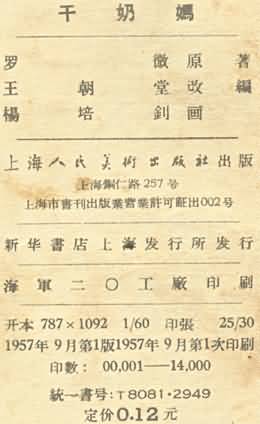 干奶媽
罗徽原著
王朝堂改編
楊培釗画
上海人民美術出版社出版
上海銅仁路257号
上海市書刊出版業营業許可証出002号
新华書店上海发行所发行
海軍二〇工廠印刷
开本 787×1092 1/60 印張 25/30
1957年9月第1版1957年9月第1次印刷
印數：00,001—14,000
統一書号：T8081·2949
定价0.12元